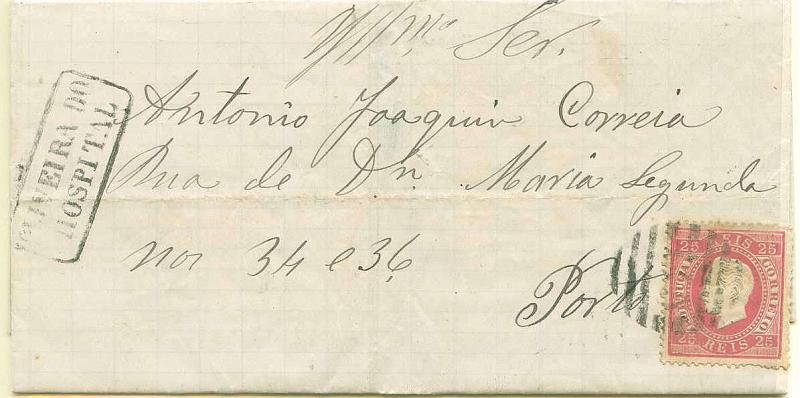 Illmo Ser.
Antonio Joaquin Correia
Rua de Dn. Maria Segunda
nos 34 e 36
Porto
OLIVEIRA DO
HOSPITAL
25 REIS 25
PORTUGAL
CORREIO
25 REIS 25